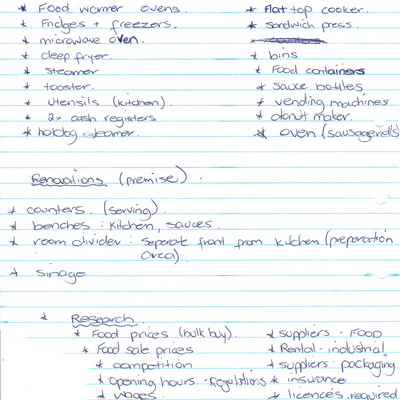 * Food warmer ovens.
* Fridges + freezers.
* microwave oven.
* deep fryer.
* steamer
* toaster.
* utensils (kitchen)
* 2x cash registers
* hotdog steamer.
* flat top cooker.
* Sandwich press.
* counters
* bins
* Food containers
* sauce bottles
* vending machines
* donut maker.
* oven (sausagerolls)
Renovations (premise).
* counters. (serving).
* benches : kitchen, sauces.
* room divider : seperate front from kitchen (preparation
area)
* sinage
* Research.
* Food prices (bulk buy).
* Food sale prices
* competition
* opening hours - Regulations
* wages
* suppliers - FOOD
* Rental - industrial
* suppliers packaging
* insurance
* licences required